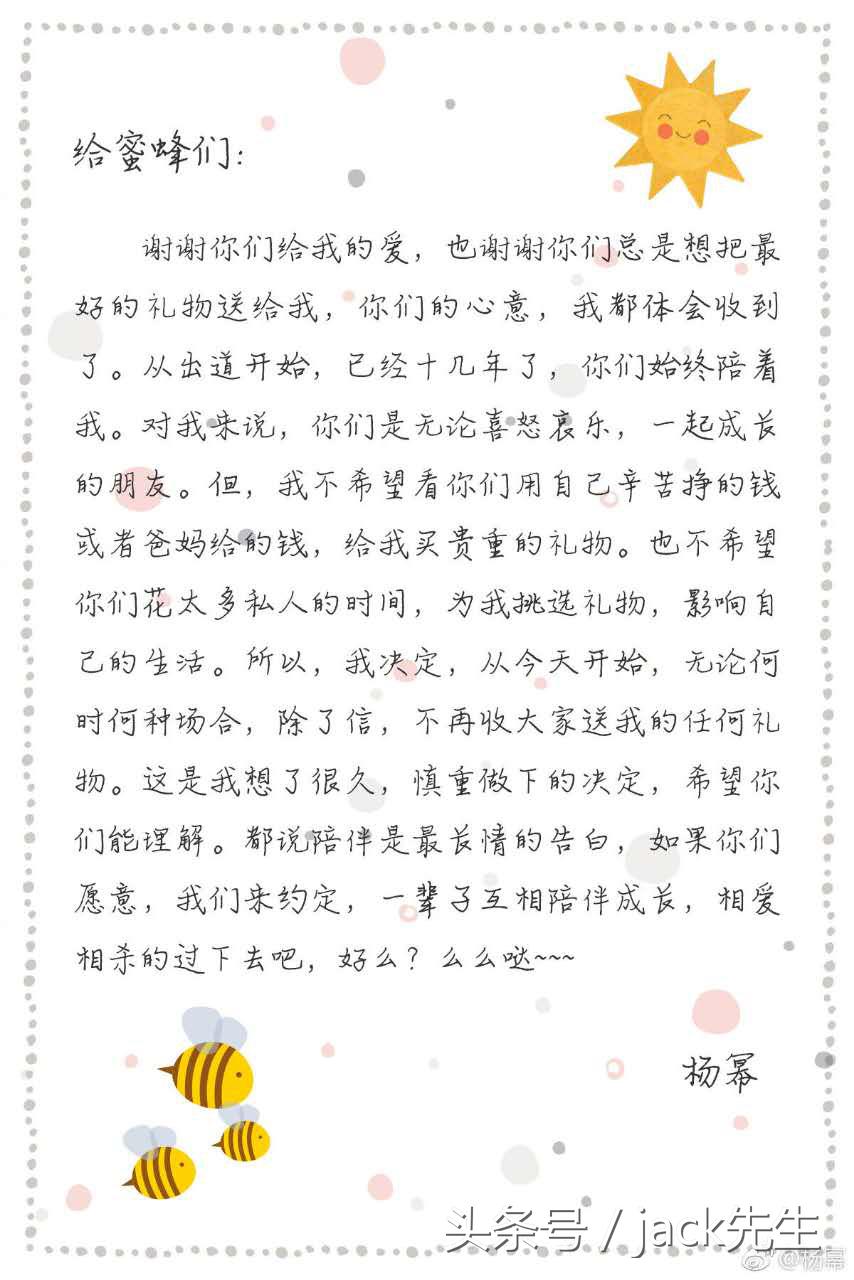 给蜜蜂们：
谢谢你们给我的爱，也谢谢你们总是想把最
好的礼物送给我，你们的心意，我都体会收到
了。从出道开始，已经十几年了，你们始终陪着
我。对我来说，你们是无论喜怒哀乐，一起成长
的朋友。但，我不希望看你们用自己辛苦挣的钱
或者爸妈给的钱，给我买贵重的礼物。也不希望
你们花太多私人的时间，为我挑选礼物，影响自
己的生活。所以，我决定，从今天开始，无论何
时何种场合，除了信，不再收大家送我的任何礼
物。这是我想了很久，慎重做下的决定，希望你
们能理解。都说陪伴是最长情的告白，如果你们
愿意，我们来约定，一辈子互相陪伴成长，相爱
相杀的过下去吧，好么？么么哒~~~
杨幂
头条号 / jack先生
@杨幂